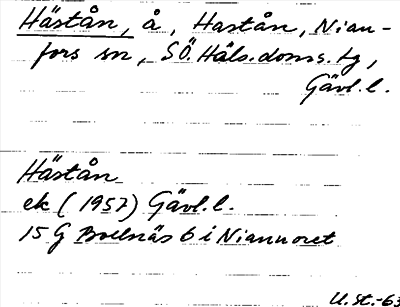 Hästån, å, Hastån, Nian-
fors sn, SÖ. Häls. doms. tg,
Gävl. l.
Hästån
ek (1957) Gävl. l.
15 G Bollnäs 6 i Niannoret
U. St. -63